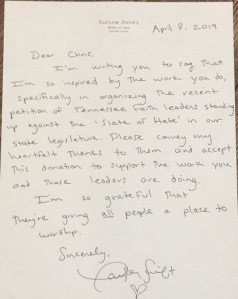 TAYLOR SWIFT
April 8, 2019
Dear Chris,
I'm writing you to say that
I'm so inspired by the work you do,
specifically in organizing the recent
petition of Tennessee faith leaders standing
up against the 'Slate of Hate' in our
state legislature. Please convey my
heartfelt thanks to them and accept
this donation to support the work you
and these leaders are doing.
I'm so grateful that
they're giving all people a place to
worship.
Sincerely,
Taylor Swift